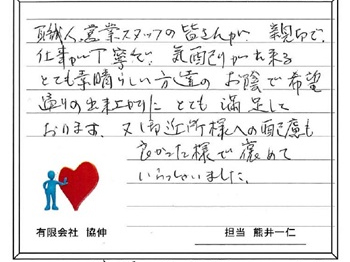 職人、営業スタッフの皆さんが、親切で、
仕事が丁寧で、気配りが出来る
とても素晴らしい方達のお陰で希望
通りの出来上がりにとても満足して
おります。又、御近所様への配慮も
良かった様で褒めて
いらっしゃいました。
有限会社 協伸
担当 熊井一仁